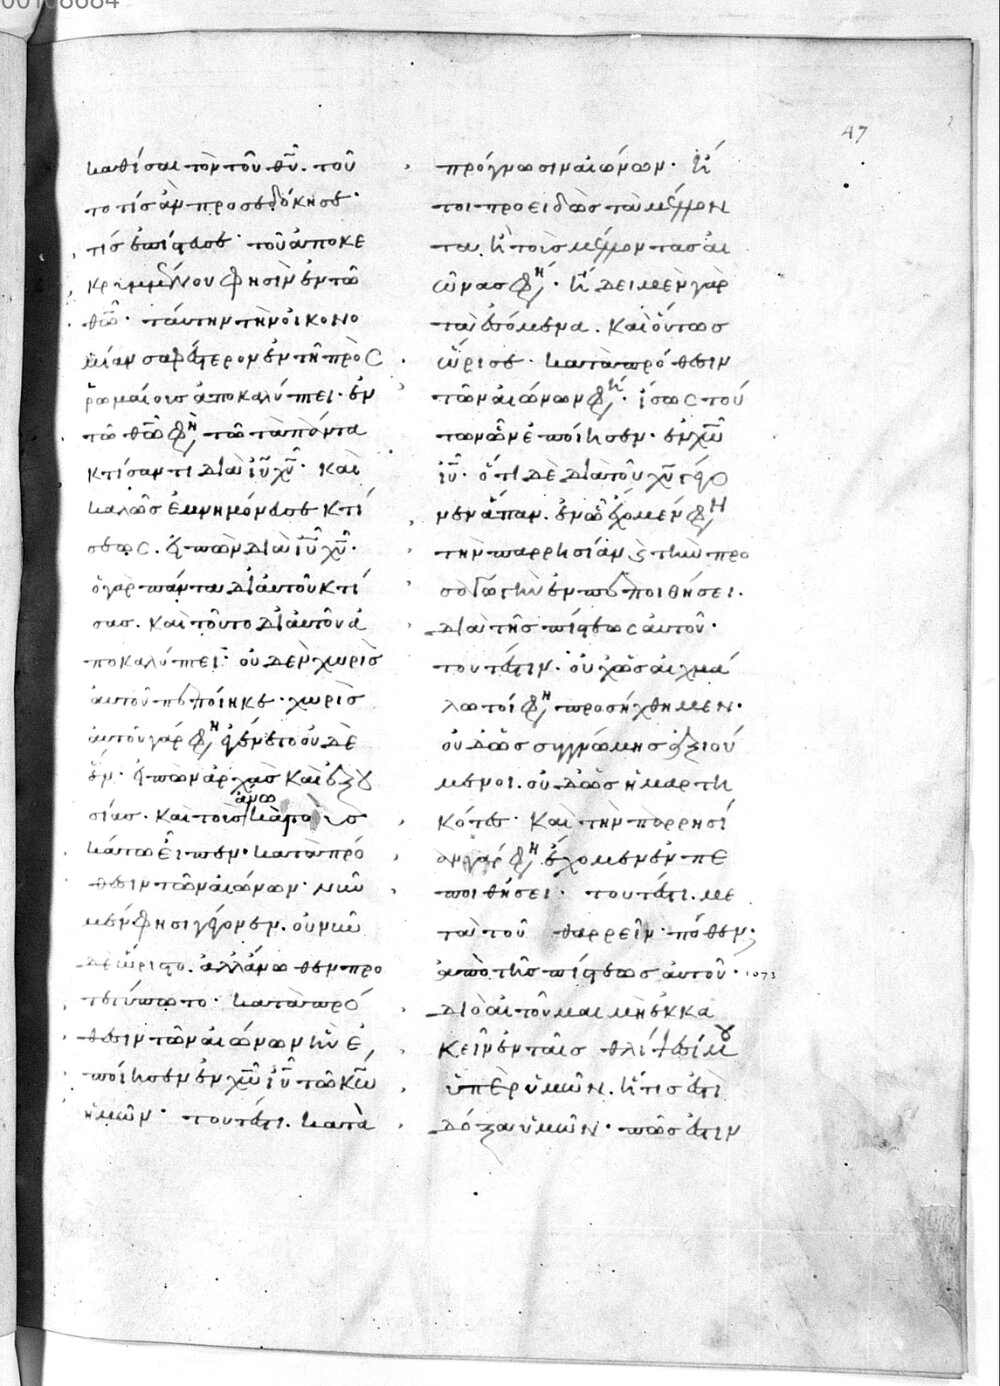 00108684
47
καθίσαι τὸν τοῦ θῦ. τοῦ
το τίς ἂν προσεδόκησε·
τίς ἐπίστευσε· τοῦ ἀποκε
κρυμμένου φησὶν ἐν τῶ
θῶ· ταύτην τὴν οἰκονο
μίαν σαφέστερον ἐν τῆ πρὸς
ῥωμαίους ἀποκαλύπτει· ἐν
τῶ θῶ φη, τῶ τὰ πάντα
κτίσαντι διὰ ιῦ χῦ· καὶ
καλῶς ἐμνημόνευσε κτί
σεως. διὰ ιῦ χῦ·
ὁ γὰρ πάντα δι αὐτοῦ κτί
σας. καὶ τοῦτο δι αὐτοῦ ἀ
ποκαλύπτει· οὐδὲν χωρὶς
αὐτοῦ πεποίηκε· χωρὶς
αὐτοῦ γάρ φη, ἐγένετο οὐδὲ
ἕν· εἰπὼν ἀρχὰς καὶ ἐξου
σίας. καὶ τοὺς ἄνω καὶ τοὺς
κάτω εἶπεν· κατὰ πρό
θεσιν τῶν αἰώνων· νῦν
μέν φησι γέγονεν. οὐ νῦν
δὲ ὥριστο. ἀλλ ἄνωθεν προ
τετύπωτο· κατὰ πρό
θεσιν τῶν αἰώνων ἣν ἐ
ποίησεν ἐν χῶ ιῦ τῶ κω
ἡμῶν· τουτέστι. κατὰ
πρόγνωσιν αἰώνων· καί
τοι προειδὼς τὰ μέλλον
τα. καὶ τοὺς μέλλοντας αἰ
ῶνας φη, · ἤδει μὲν γὰρ
τὰ ἑπόμενα. καὶ οὕτως
ὥρισε· κατὰ πρόθεσιν
τῶν αἰώνων φη, · ἴσως τού
των ὧν ἐποίησεν· ἐν χῶ
ιῦ· ὅτι δὲ διὰ τοῦ χῦ γέγο
νεν ἅπαν. ἐν ῶ ἔχομέν φη,
τὴν παρρησίαν καὶ τὴν προ
σαγωγὴν ἐν πεποιθήσει.
διὰ τῆς πίστεως αὐτοῦ·
τουτέστιν· οὐχ ὡς αἰχμά
λωτοί φη, προσήχθημεν·
οὐδὲ ὡς συγγνώμης ἀξιού
μενοι. οὐδὲ ὡς ἡμαρτη
κότες· καὶ τὴν παρρησί
αν γάρ φη, ἔχομεν ἐν πε
ποιθήσει· τουτέστι. με
τὰ τοῦ θαρρεῖν· πόθεν;
ἀπὸ τῆς πίστεως αὐτοῦ·
διὸ αἰτοῦμαι μὴ ἐκκα
κεῖν ἐν ταῖς θλίψεσί μου
ὑπὲρ ὑμῶν. ἥτις ἐστὶ
δόξα ὑμῶν· πῶς ἐστιν